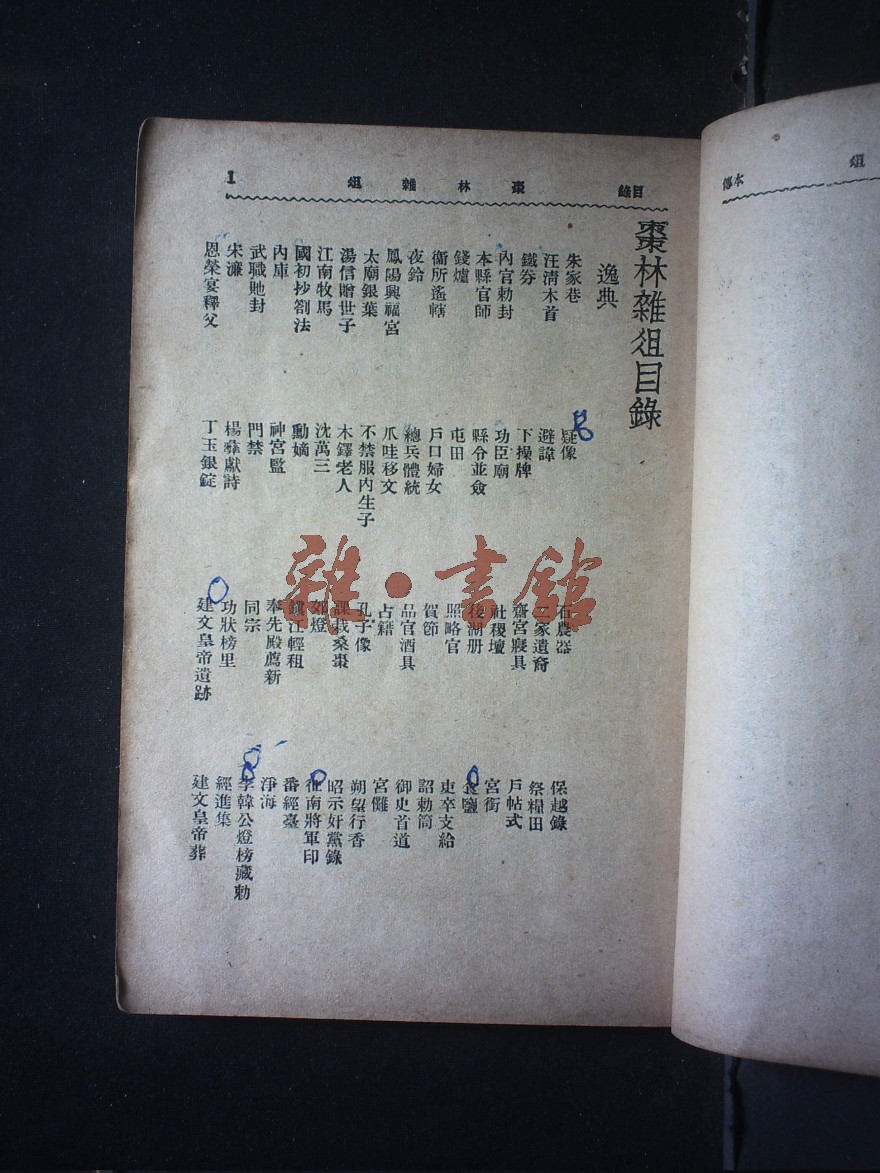 目錄 棗林雜俎 1
棗林雜俎目錄
逸典
朱家巷
汪清木首
鐵券
內官勅封
本縣官師
錢爐
衞所遙轄
夜鈴
鳳陽興福宮
太廟銀葉
湯信贈世子
江南牧馬
國初抄劄法
內庫
武職貤封
宋濂
恩榮宴釋父
疑像
避諱
下操牌
功臣廟
縣令並僉
屯田
戶口婦女
總兵體統
爪哇移文
不禁服內生子
木鐸老人
沈萬三
勳嫡
神宮監
門禁
楊彝獻詩
丁玉銀錠
石農器
二家遺裔
齋宮寢具
社稷壇
後湖册
照略官
賀節
品官酒具
占籍
孔子像
課栽桑棗
郊燈
鎮江輕租
奉先殿薦新
同宗
功狀榜里
建文皇帝遺跡
保越錄
祭糧田
戶帖式
宮銜
食鹽
吏卒支給
詔勅筒
御史首道
宮儺
朔望行香
昭示奸黨錄
征南將軍印
番經臺
淨海
李韓公燈榜藏勅
經進集
建文皇帝葬
本傳 俎
雜·書館